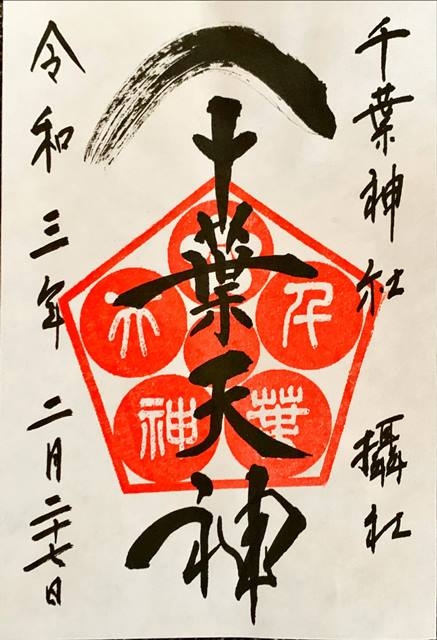 千葉神社 攝社
千葉天神
千葉
天神
令和三年二月二十七日